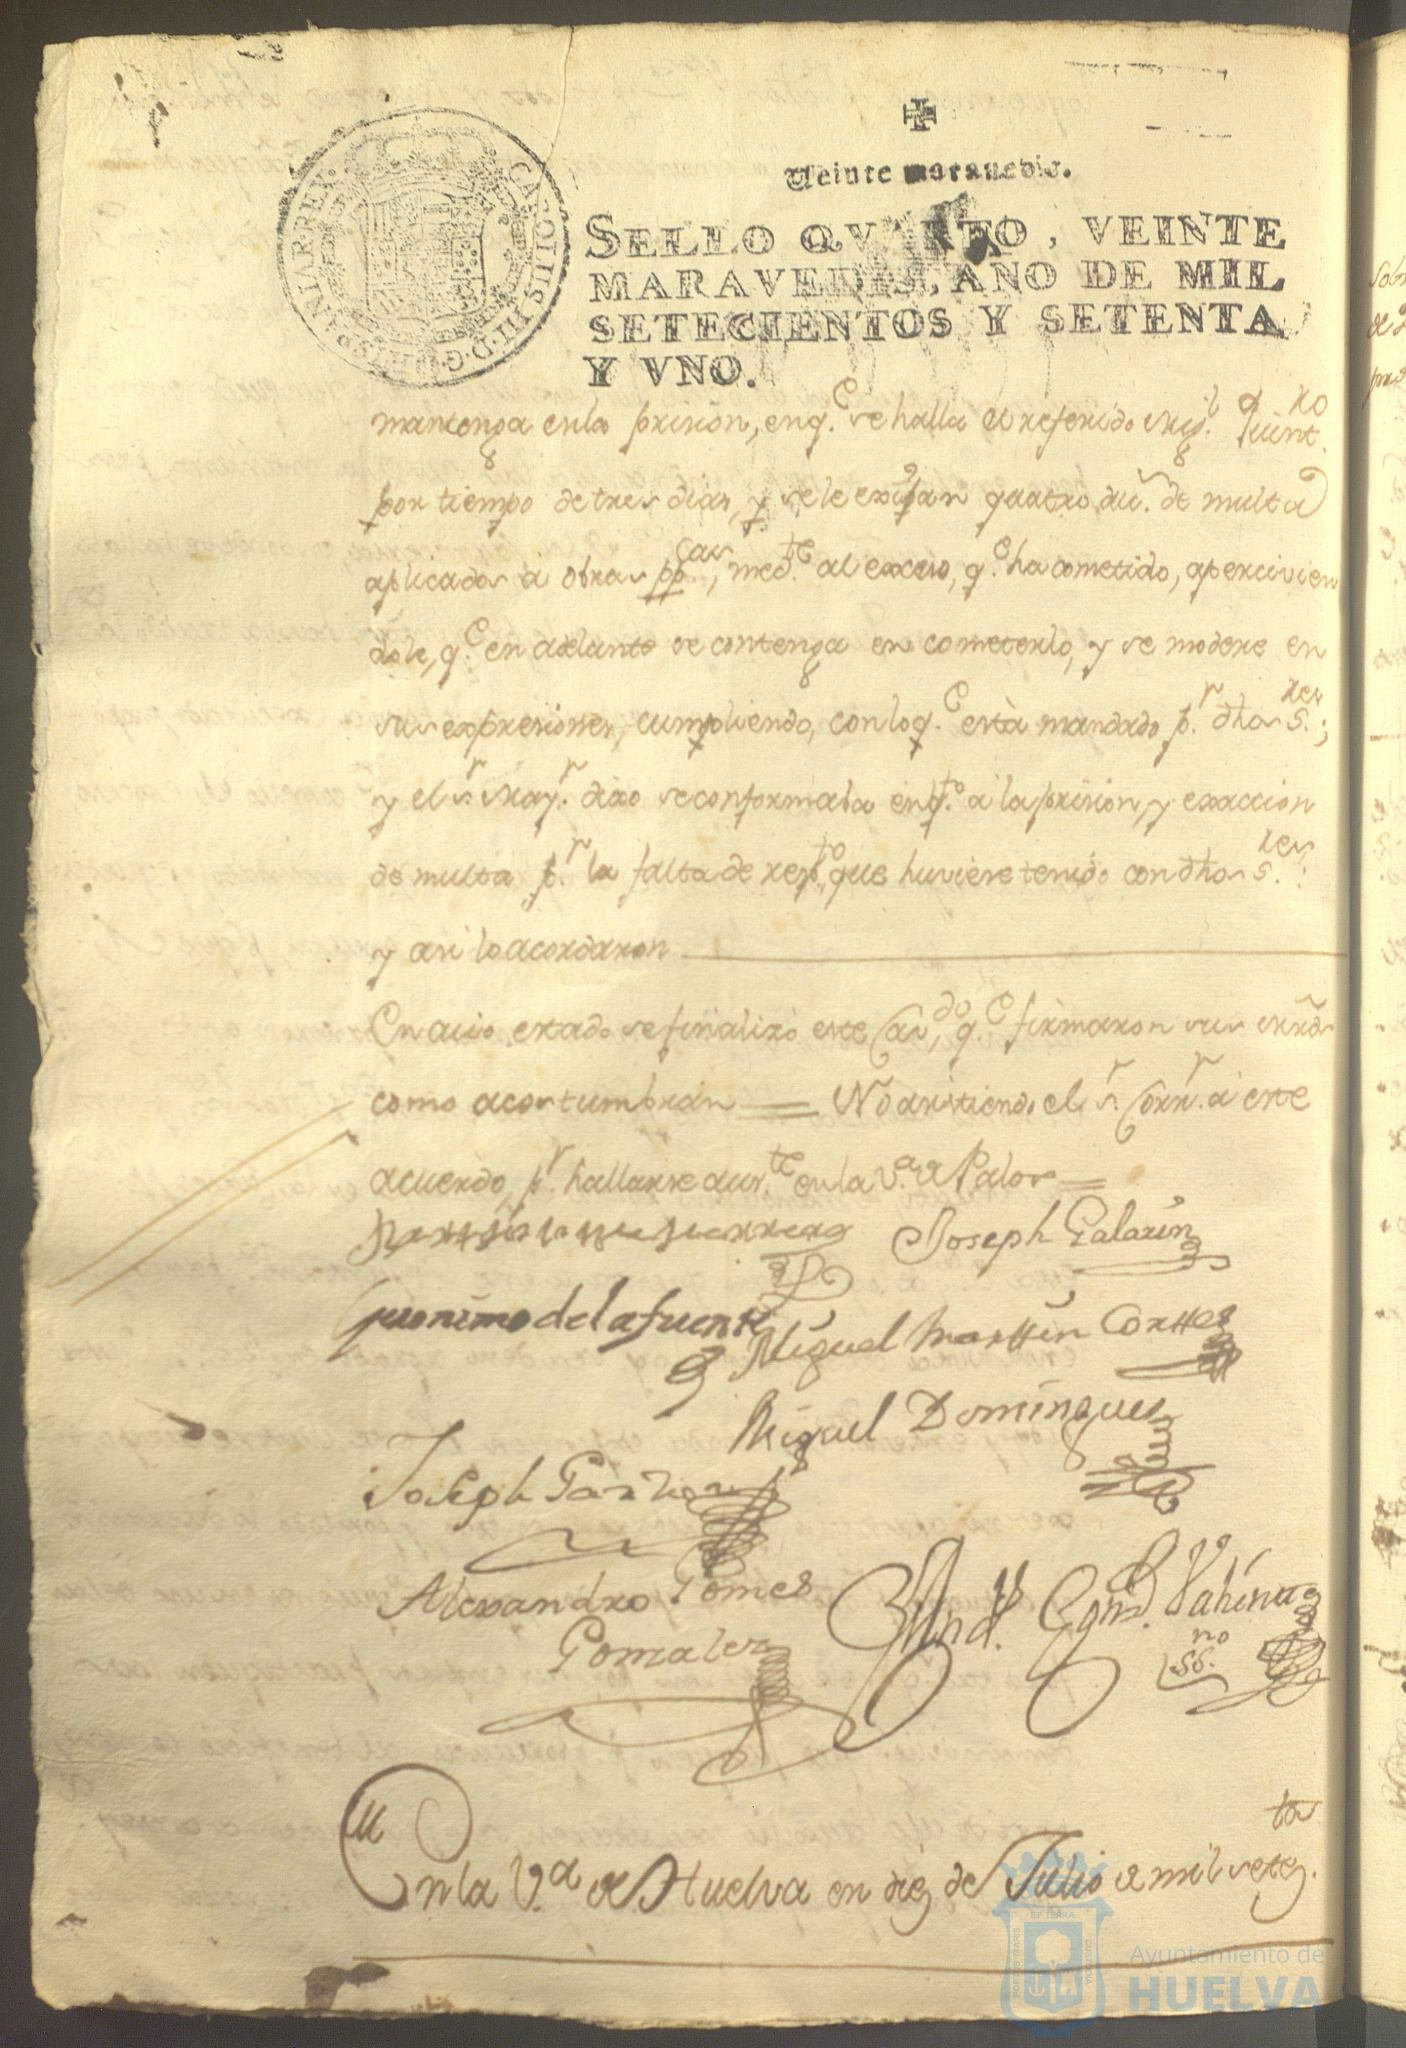 Veinte maravedis.
SELLO QVARTO, VEINTE
MARAVEDIS, AÑO DE MIL
SETECIENTOS Y SETENTA
Y VNO.
CAROLUS III D. G. HISPANIAR. REX
mantenga enla prision, enq.e se halla el referido Mig.l Quint.ro
por tiempo de tres dias, y se le exijan quatro du.s de multa
aplicados a obras pp.cas, med.te al exceso, q.e ha cometido, apercivien
dole, q.e en adelante se contenga en cometerlo, y se modere en
sus expresiones, cumpliendo, con loq.e està mandado p.r dhos S.res;
y el s.r May.r dixo se conformaba enq.to a la prision, y exaccion
de multa p.r la falta de resp.to que huviere tenido con dhos S.res:
y asi lo acordaron
En cuio estado se finalizó este Cav.do, q.e firmaron sus mrds
como acostumbran = No asistiendo el s.r Corr.r a este
acuerdo, p.r hallarse aus.te en la V.a de Palos =
Joseph Galarin
Geronimo de la fuente
Miguel Martin Cortes
Miguel Dominguez
Joseph Garzia
Alexandro Gomes
Gonzalez
SS.no
En la V.a de Huelva en diez de Julio de mil setez.tos
Ayuntamiento de
HUELVA